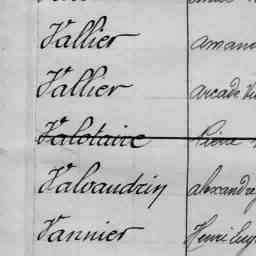 Vallier Amand
Vallier arcade
Valotaire Pierre
Valvaudrin alexandre
Vannier Henri Eug